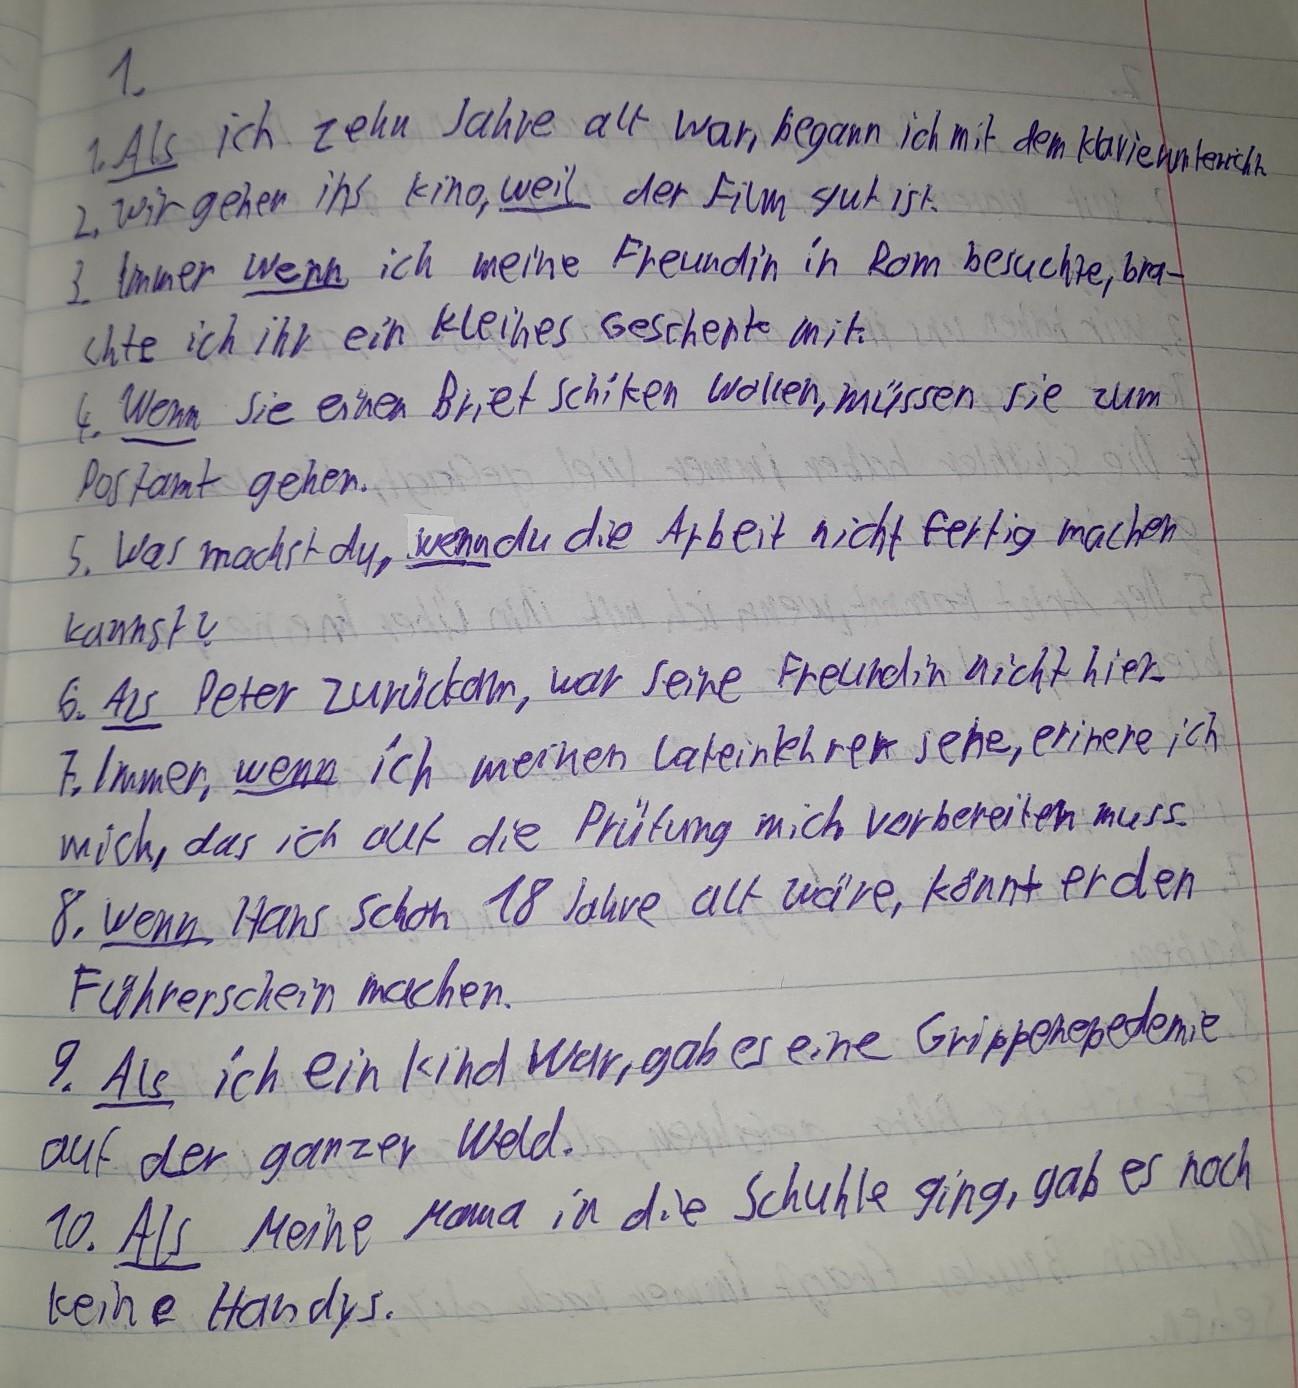 1.
1. Als ich zehn Jahre alt war, begann ich mit dem Klavierunterricht
2. Wir gehen ins Kino, weil der Film gut ist.
3. Immer wenn ich meine Freundin in Rom besuchte, bra-
chte ich ihr ein kleines Geschenk mit.
4. Wenn sie einen Brief schiken wollen, müssen sie zum
Postamt gehen.
5. Was machst du, wenn du die Arbeit nicht fertig machen
kannst?
6. Als Peter zurückam, war seine Freundin nicht hier.
7. Immer, wenn ich meinen Lateinlehrer sehe, erinere ich
mich, das ich auf die Prüfung mich vorbereiten muss.
8. Wenn Hans schon 18 Jahre alt wäre, könnt er den
Führerschein machen.
9. Als ich ein Kind war, gab es eine Grippenepedemie
auf der ganzer Weld.
10. Als Meine Mama in die Schuhle ging, gab es noch
keine Handys.